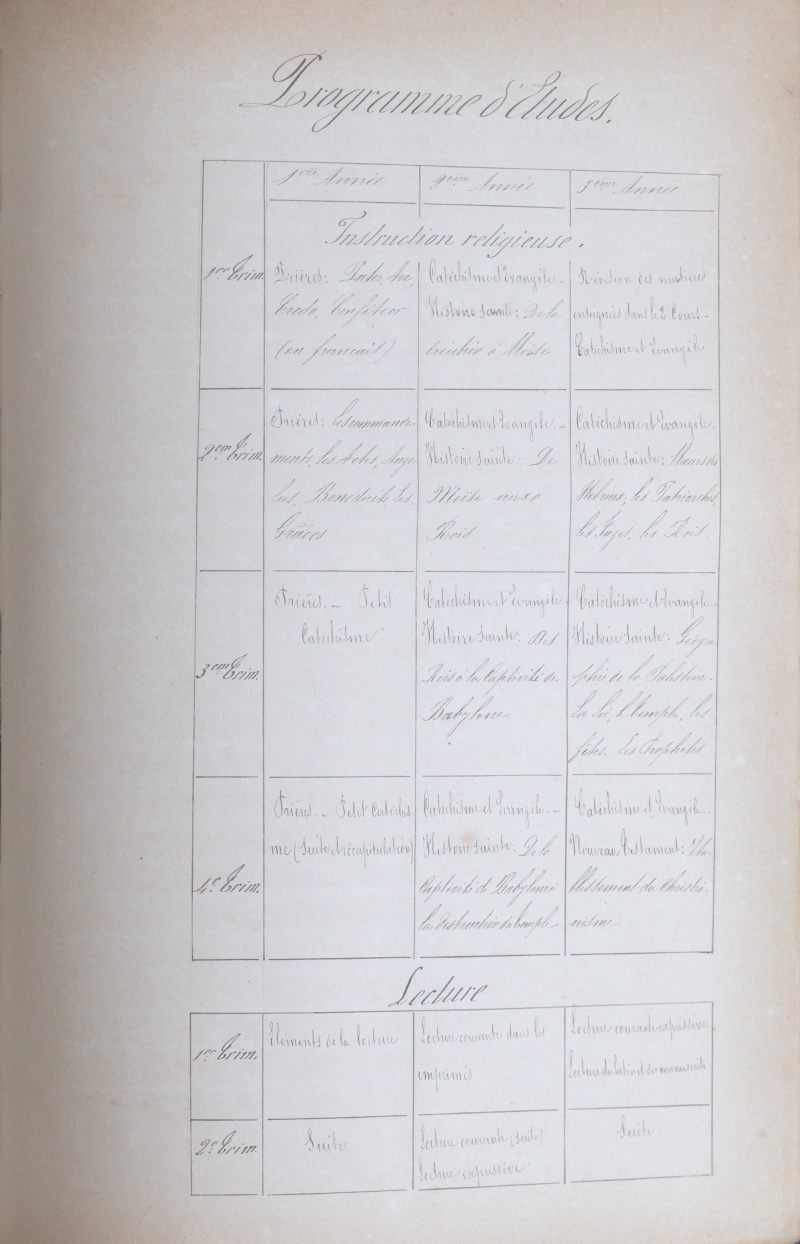 Programme d'Études.
1ère Année
2ème Année
3ème Année
Instruction religieuse.
1er Trim.
Prières: Pater, Ave,
Credo, Confiteor
(en français)
Catéchisme et Évangile _
Histoire Sainte: De la
Création à Moïse
Révision des matières
enseignées dans le 2 Cours _
Catéchisme et Évangile
2em Trim.
Prières: les commande-
ments, les Actes, Ange-
lus, Benedicite, les
Grâces
Catéchisme et Évangile. _
Histoire Sainte: De
Moïse aux
Rois
Catéchisme et Évangile.
Histoire Sainte: Mœurs des
Hébreux, les Patriarches,
les Juges, les Rois.
3em Trim.
Prières. _ Petit
Catéchisme
Catéchisme et Évangile _
Histoire Sainte: Des
Rois à la Captivité de
Babylone
Catéchisme et Évangile.
Histoire Sainte: Géogra-
phie de la Palestine.
La loi, le Temple, les
fêtes. Les Prophètes
4e Trim.
Prières. _ Petit Catéchis-
me (Suite et récapitulation)
Catéchisme et Évangile. _
Histoire Sainte: De la
Captivité de Babylone à
la destruction du Temple
Catéchisme et Évangile.
Nouveau Testament: Éta-
blissement du Christia-
nisme
Lecture
1er Trim.
Éléments de la lecture
Lecture courante dans les
imprimés
Lecture courante expressive.
Lecture du latin et des manuscrits
2e Trim.
Suite
Lecture courante (suite)
Lecture expressive
Suite